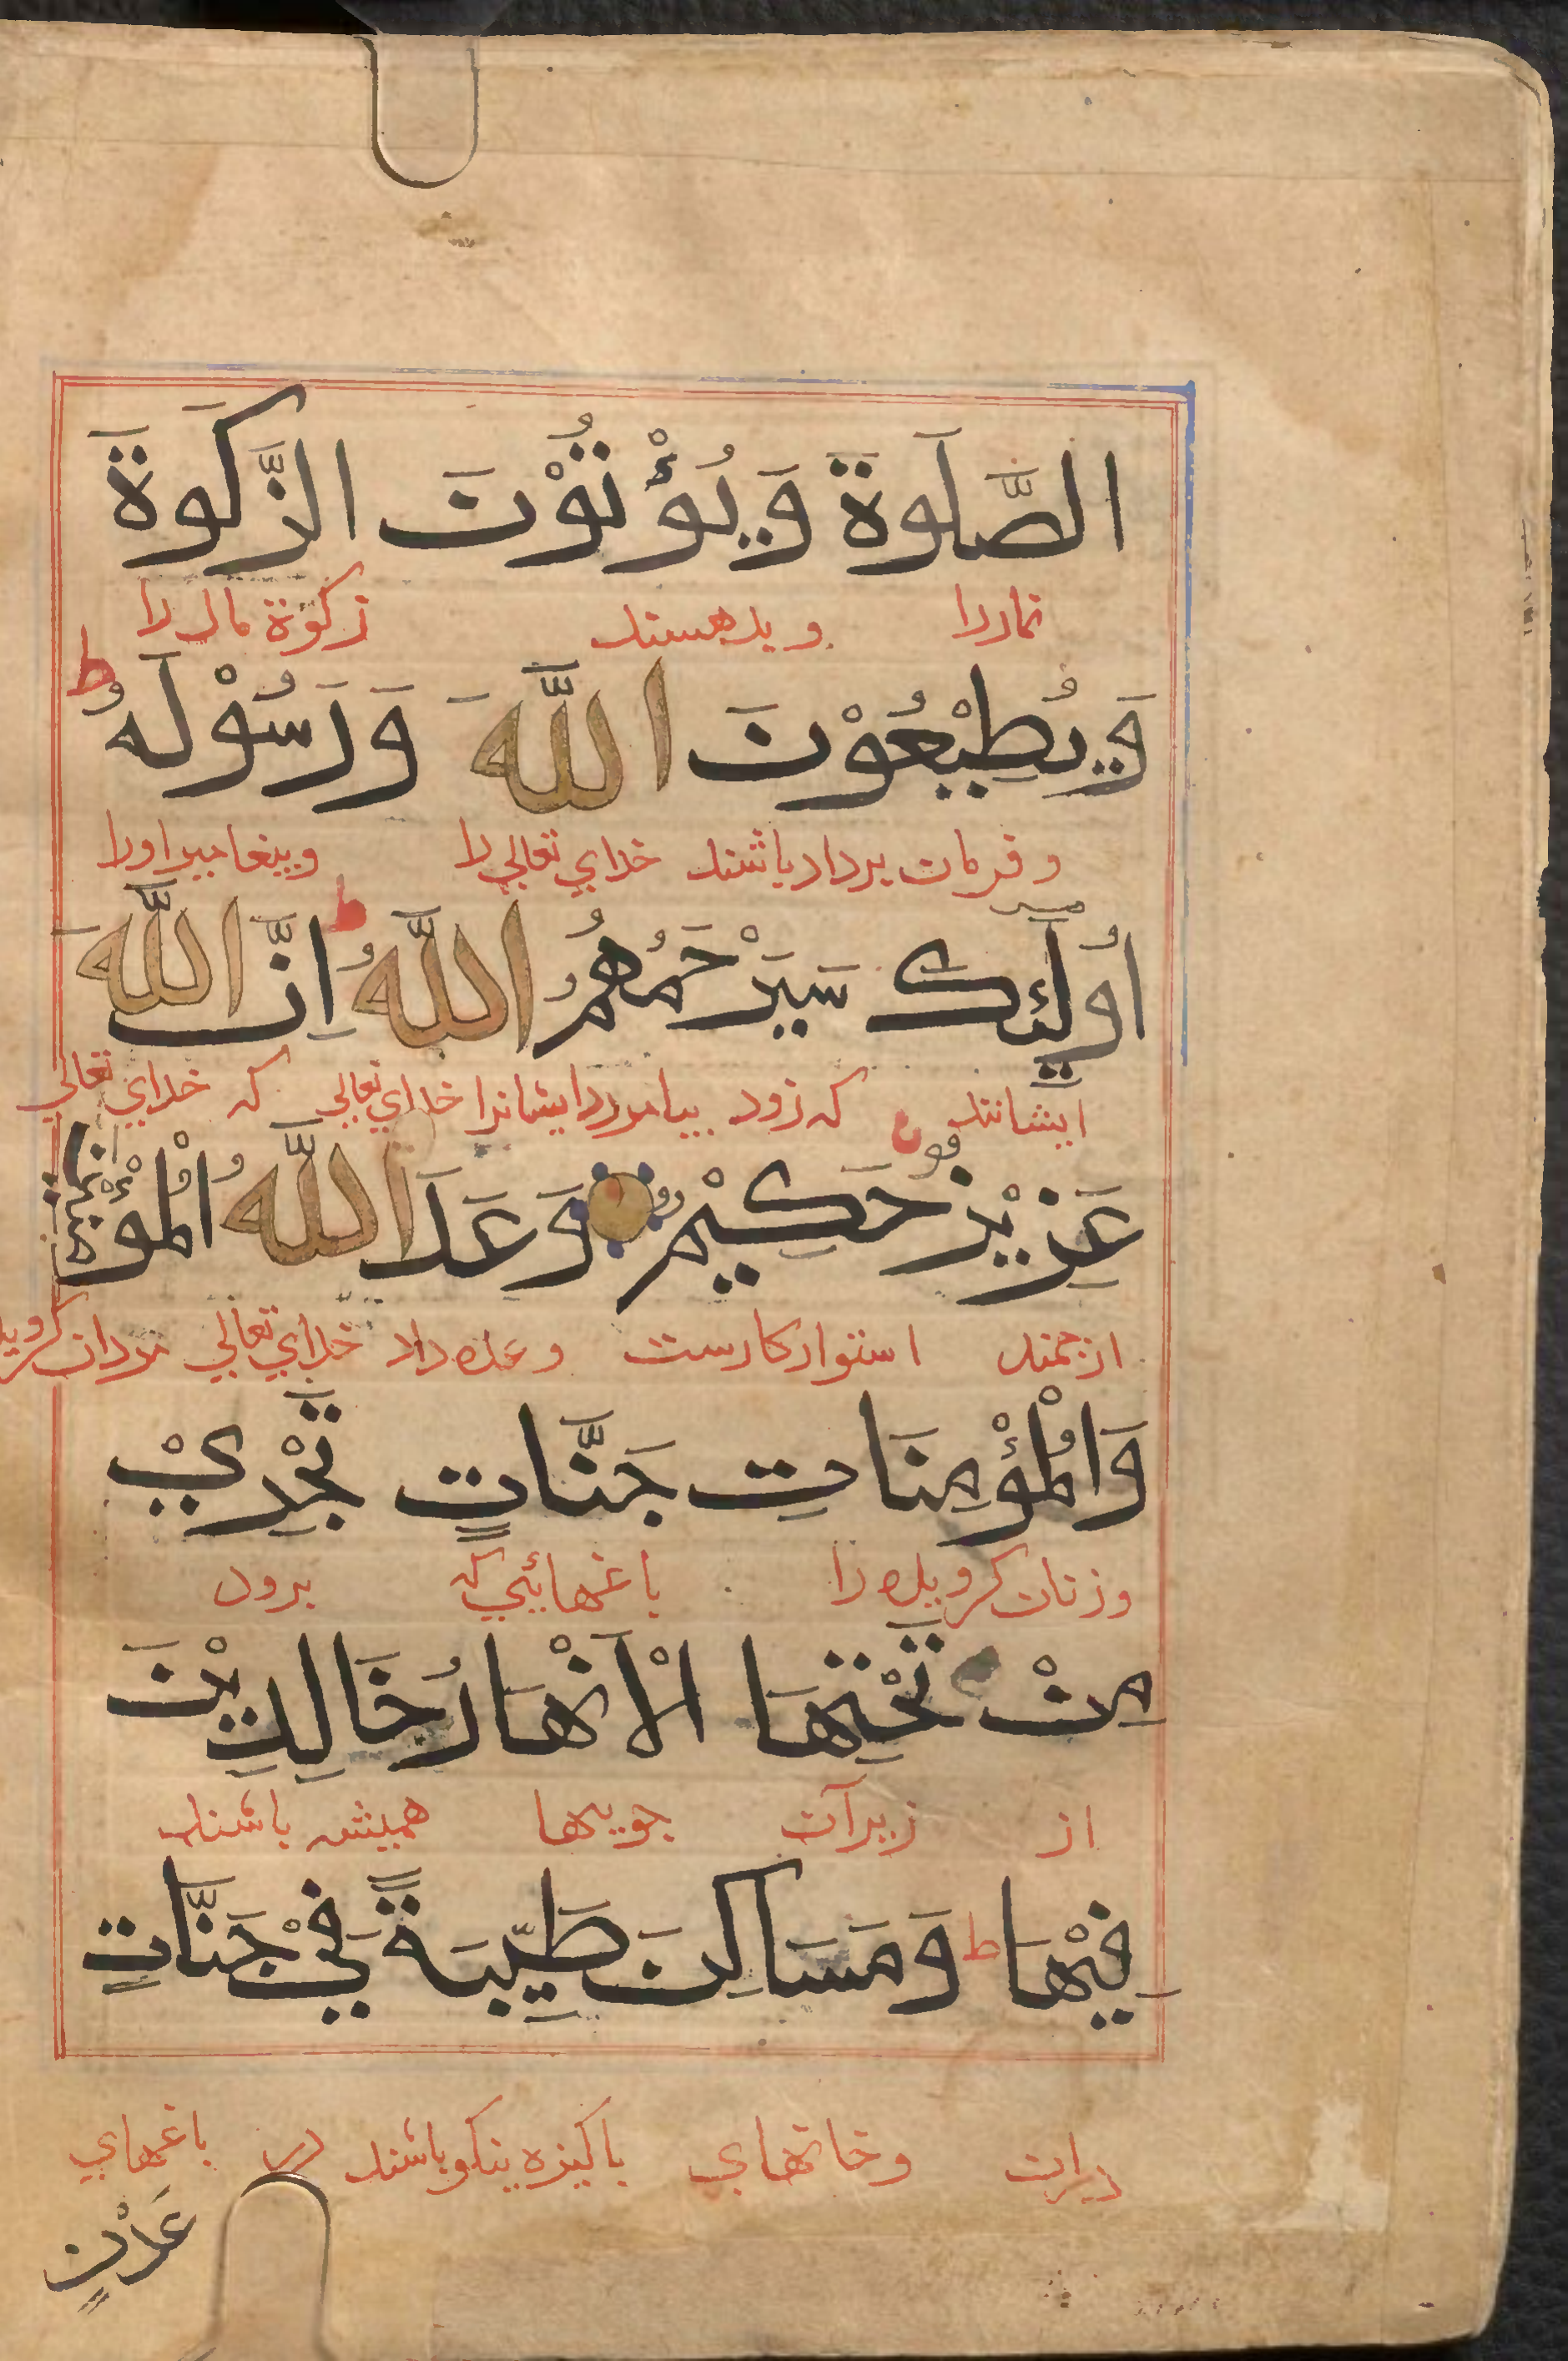 الصَّلَوةَ وَيُؤْتُوْنَ الزَّكَوةَ
نماز را و بدهستند زكوة مال را
وَيُطِيْعُوْنَ اللّٰهَ وَرَسُوْلَهُ ط
و فرمان بردار باشند خداي تعالي را و پيغامبر اورا
أُولَئِكَ سَيَرْحَمُهُمُ اللّٰهُ ط اِنَّ اللّٰهَ
ايشانند كه زود بيامرزد ايشانرا خداي تعالي كه خداي تعالي
عَزِيْزٌ حَكِيْمٌ وَعَدَ اللّٰهُ الْمُؤْمِنِيْنَ
ارجمند استوار كارست وعده داد خداي تعالي مردان كرويده
وَالْمُؤْمِنَاتِ جَنَّاتٍ تَجْرِيْ
و زنان كرويده را باغهائيي كه برود
مِنْ تَحْتِهَا الْاَنْهَارُ خَالِدِيْنَ
از زير آن جويها هميشه باشند
فِيْهَا ط وَمَسَاكِنَ طَيِّبَةً فِيْ جَنَّاتٍ
دران وخانهاي پاكيزه نيكو باشند در باغهاي
عَدْنٍ